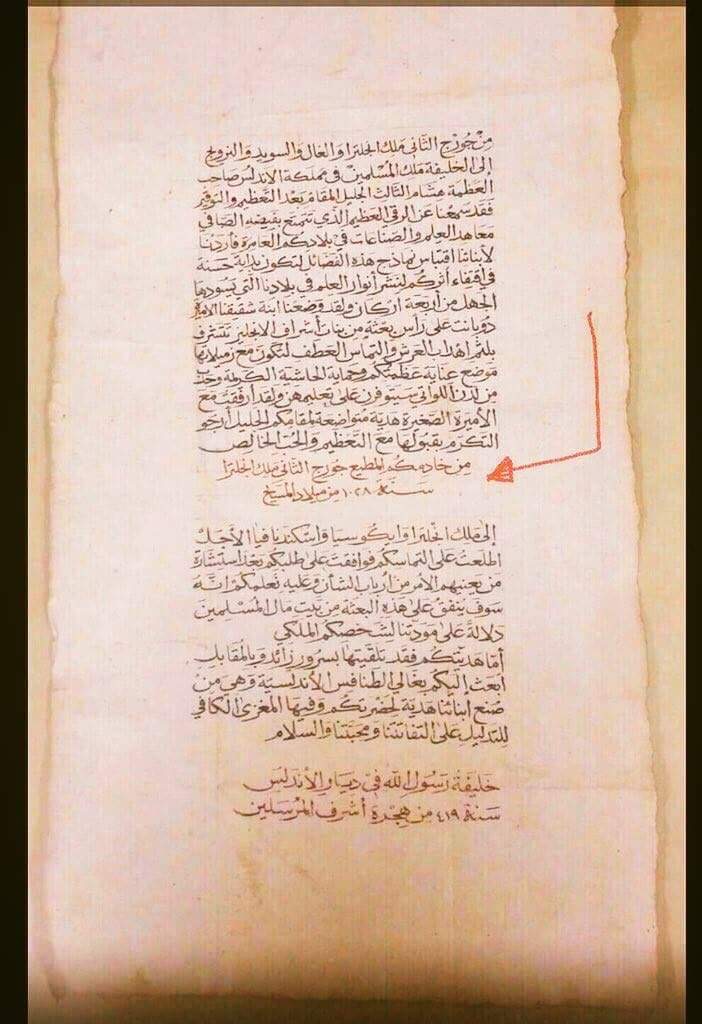 مِن جُورج الثَّاني مَلك انجلترا وَالغَال وَالسويد وَالنرويج
إلى الخَليفَة مَلك المُسْلمينَ في مَملكة الاندلس صَاحب
العَظمَة هِشَام الثَالِث الجَليل المقَام بَعْد التَّعْظيم والتوقير
فَقَد سَمعْنا عَن الرقي العَظيم الذي تَتمتع بفَيضه الصَّافي
مَعَاهد العِلم وَالصّناعَات في بلادكم العَامرة فَأردْنا
لأبنَائنا اقتبَاس نماذج هذه الفَضَائل لتكون بدَاية حَسَنة
في اقتفَاء أثركُم لنَشر أنوار العلم في بلادنا التي يَسُودهَا
الجَهل من أربَعة أركَان وَلقد وضعنا ابنة شقيقنا الاميرة
دُوبَانت على رَأس بعثة من بنات أشراف الانجليز تتشرف
بلثم أهداب العَرش وَالتماس العَطف لتكون مَع زميلاتها
مَوضع عناية عَظمتكم وحماية الحَاشية الكَريمة وحدب
من لدن اللواتي سَيتوفرن على تعليمهن وَلقد أرفقت مَع
الأميرة الصَغيرة هدية مُتواضعة لمقَامكُم الجليل أرجو
التكرم بقبُولها مَع التعظيم وَالحُب الخَالص
مِن خَادمكُم المطيع جُورج الثَّاني مَلك انجلترا
سَنة ١٠٢٨ مِن ميلاد المَسيح
إلى مَلك انجلترا وَايكوسيا وَاسكندنيافيا الأجَل
اطلعتُ على التماسكُم فوافقت على طلبكُم بعْد استشَارة
من يعنيهم الأمر من أربَاب الشأن وعَليه نعلمكم انَّه
سَوف ينفق على هذه البَعثة مِن بَيت مَال المُسْلمين
دلالَة على مَودتنا لشخصكم المَلكي
أمّا هَديتكُم فقد تلقيتها بسرور زَائد وَبالمُقابل
أبعث إليكُم بغَالي الطنافس الأندلسيَة وَهي مِن
صُنع أبنَائنا هَدية لحَضرتكُم وَفيها المغزى الكَافي
للتدليل على التفاتتنا ومحبَّتنا وَالسَّلام
خَليفَة رَسُول الله في ديَار الأندلس
سَنة ٤١٩ من هِجرة أشرف المُرسَلين